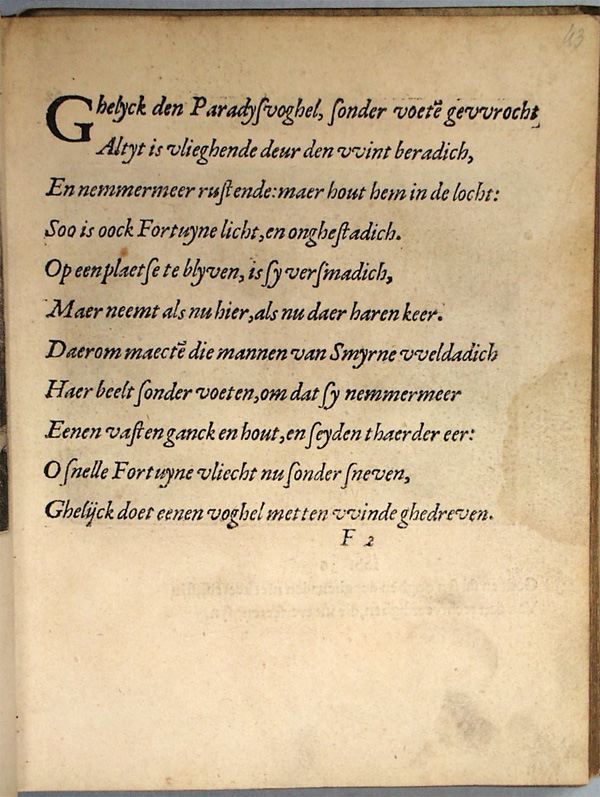 43
Ghelyck den Paradyſvoghel, ſonder voetē gevvrocht,
Altyt is vlieghende deur den vvint beradich,
En nemmermeer ruſtende: maer hout hem in de locht:
Soo is oock Fortuyne licht, en ongheſtadich.
Op een plaetſe te blyven, is ſy verſmadich,
Maer neemt als nu hier, als nu daer haren keer.
Daerom maectē die mannen van Smyrne vveldadich
Haer beelt ſonder voeten, om dat ſy nemmermeer
Eenen vaſten ganck en hout, en ſeyden t'haerder eer:
O ſnelle Fortuyne vliecht nu ſonder ſneven,
Ghelijck doet eenen voghel metten vvinde ghedreven.
F 2